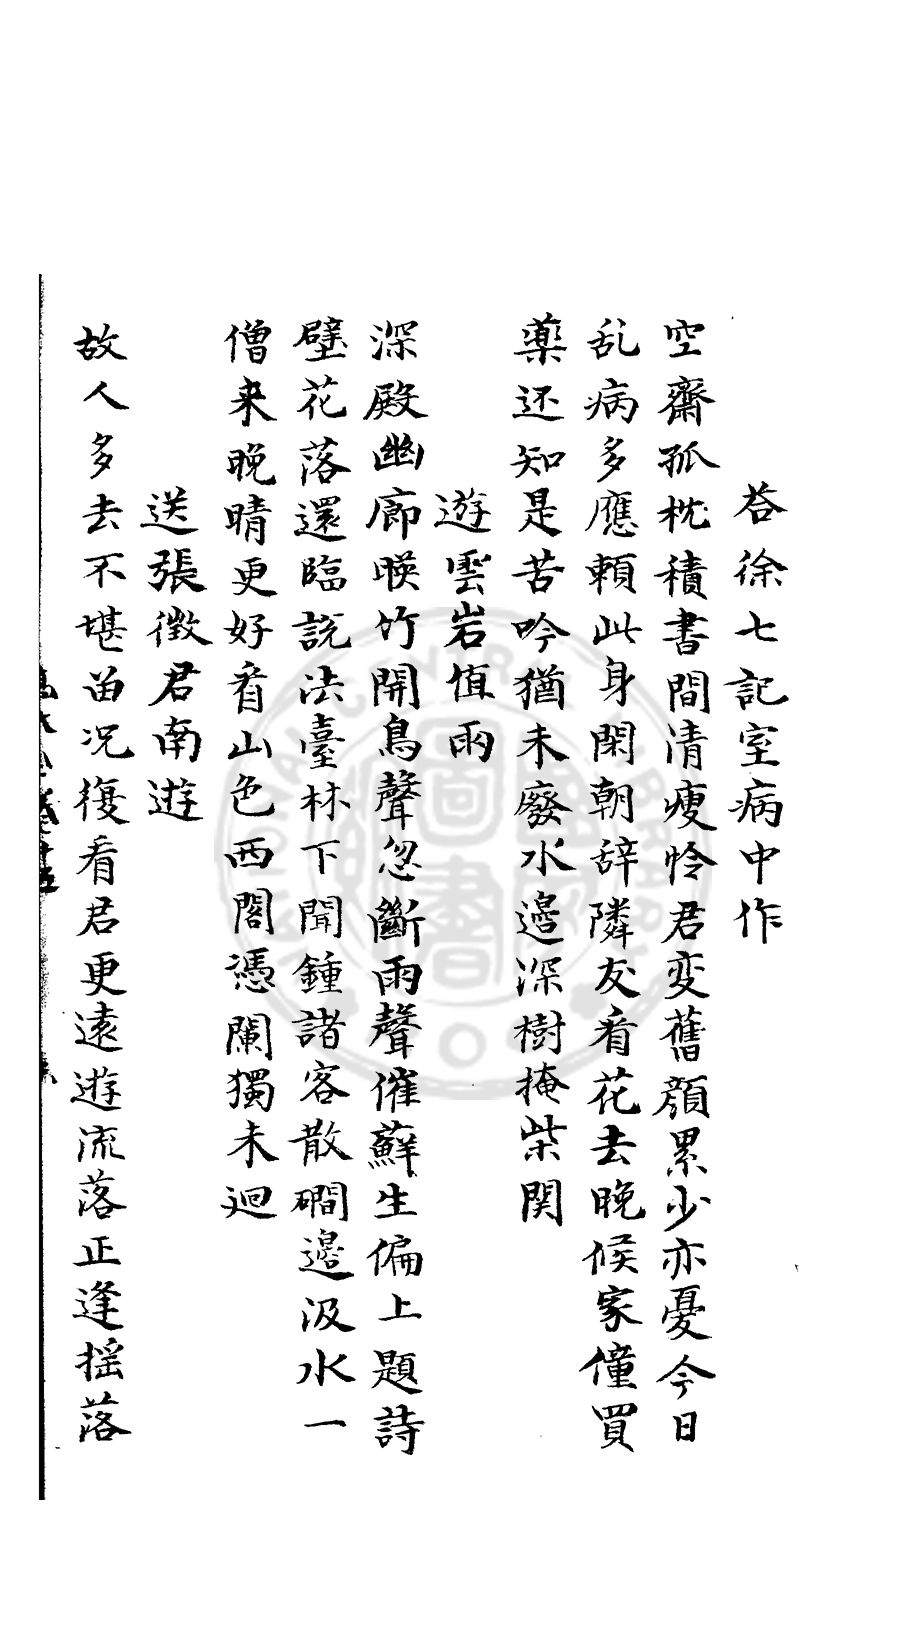 荅徐七記室病中作
空齋孤枕積書間清瘦怜君变舊顔累少亦憂今日
乱病多應頼此身閑朝辞隣友看花去晚候家僮買
藥还知是苦吟猶未廢水邉深樹掩柴関
遊雲岩值雨
深殿幽廊暎竹開鳥聲忽斷雨聲催蘇生偏上題詩
壁花落還臨説法臺林下聞鍾諸客散磵邉汲水一
僧来晚晴更好看山色西閣憑闌獨未迴
送張徵君南遊
故人多去不堪畄况復看君更遠遊流落正逢揺落